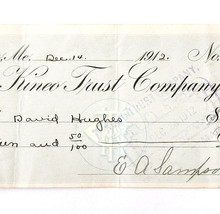 Me. Dec. 14. 1912. No.
Kineo Trust Company
David Hughes $
and 50/100
E A Sampso